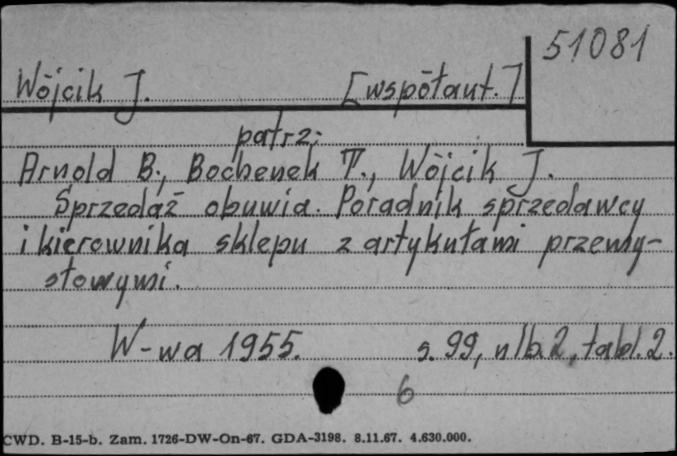 51081
Wójcik J. [współaut.]
patrz:
Arnold B., Bochenek T., Wójcik J.
Sprzedaż obuwia. Poradnik sprzedawcy
i kierownika sklepu z artykułami przemy-
słowymi.
W-wa 1955. s. 99, nlb. 2, tabl. 2.
6
CWD. B-15-b. Zam. 1726-DW-On-67. GDA-3198. 8.11.67. 4.630.000.